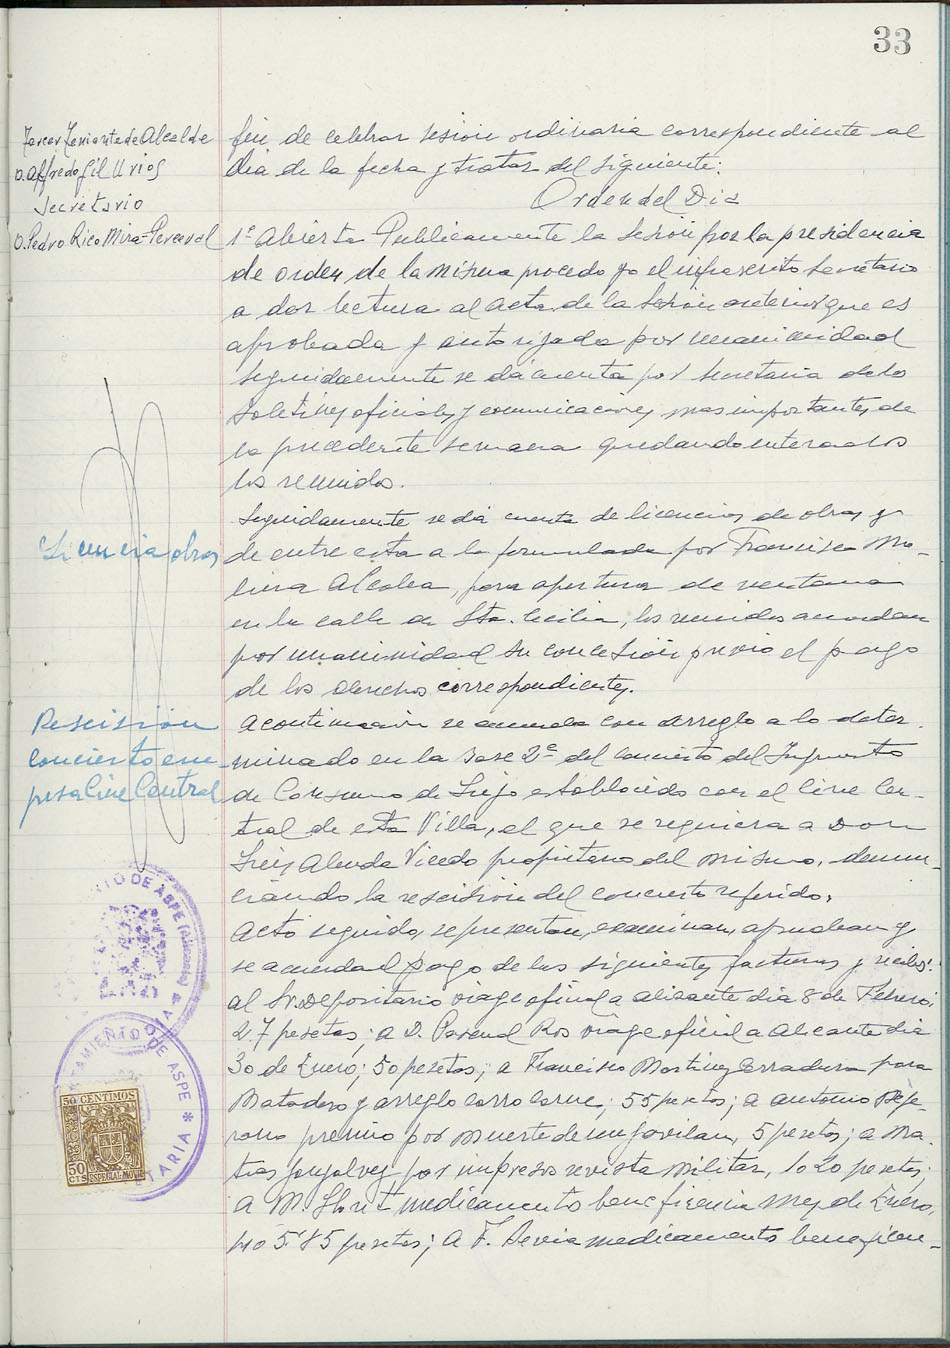 33
Tercer Teniente de Alcalde
D. Alfredo Gil Urios
Secretario
D. Pedro Rico Mira-Perceval
fin de celebrar sesion ordinaria correspondiente al
dia de la fecha y tratar del siguiente:
Orden del Dia
1º Abierta Publicamente la sesion por la presidencia
de orden de la misma procedo yo el infrascrito secretario
a dar lectura al acta de la sesion anterior que es
aprobada y autorizada por unanimidad
seguidamente se da cuenta por secretaria de los
Boletines oficiales y comunicaciones mas importantes de
la precedente semana quedando enterados
los reunidos.
Licencia obras
Seguidamente se da cuenta de licencias de obras y
de entre esta a la formulada por Francisco Mo-
lina Alcolea, para apertura de ventana
en la calle de Sta. Cecilia, los reunidos acuerdan
por unanimidad su concesion previo el pago
de los derechos correspondientes.
Rescision
concierto em-
presa Cine Central
A continuacion se acuerda con arreglo a lo deter-
minado en la base 2ª del concierto del Impuesto
de Consumo de Lujo establecido con el Cine Cen-
tral de esta Villa, el que se requiera a Don
Luis Alenda Vicedo propietario del mismo, denun-
ciando la rescision del concierto referido.
Acto seguido, se presentan, examinan, aprueban y
se acuerda el pago de las siguientes facturas y recibos:
al Sr. Depositario viage oficial a alicante dia 8 de Febrero;
27 pesetas; a D. Pascual Ros viage oficial a Alicante dia
30 de Enero; 50 pesetas; a Francisco Martinez Erradura para
Matadero y arreglo carro carne; 55 pesetas; a Antonio
premio por muerte de un gavilan, 5 pesetas; a Ma-
tias Gonzalvez por impresos revista militar, pesetas;
a M. medicamento beneficencia mes de Enero,
pesetas; A F. medicamento beneficen-
AYUNTAMIENTO DE ASPE (Alicante)
AYUNTAMIENTO DE ASPE * SECRETARIA
50 CENTIMOS
50
CTS
ESPECIAL MOVIL